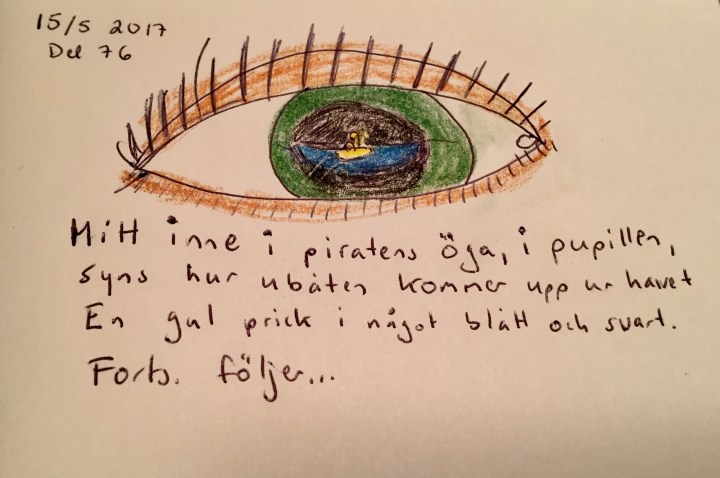 15/5 2017
Del 76
Mitt inne i piratens öga, i pupillen,
syns hur ubåten kommer upp ur havet
En gul prick i något blått och svart.
Forts. följer...